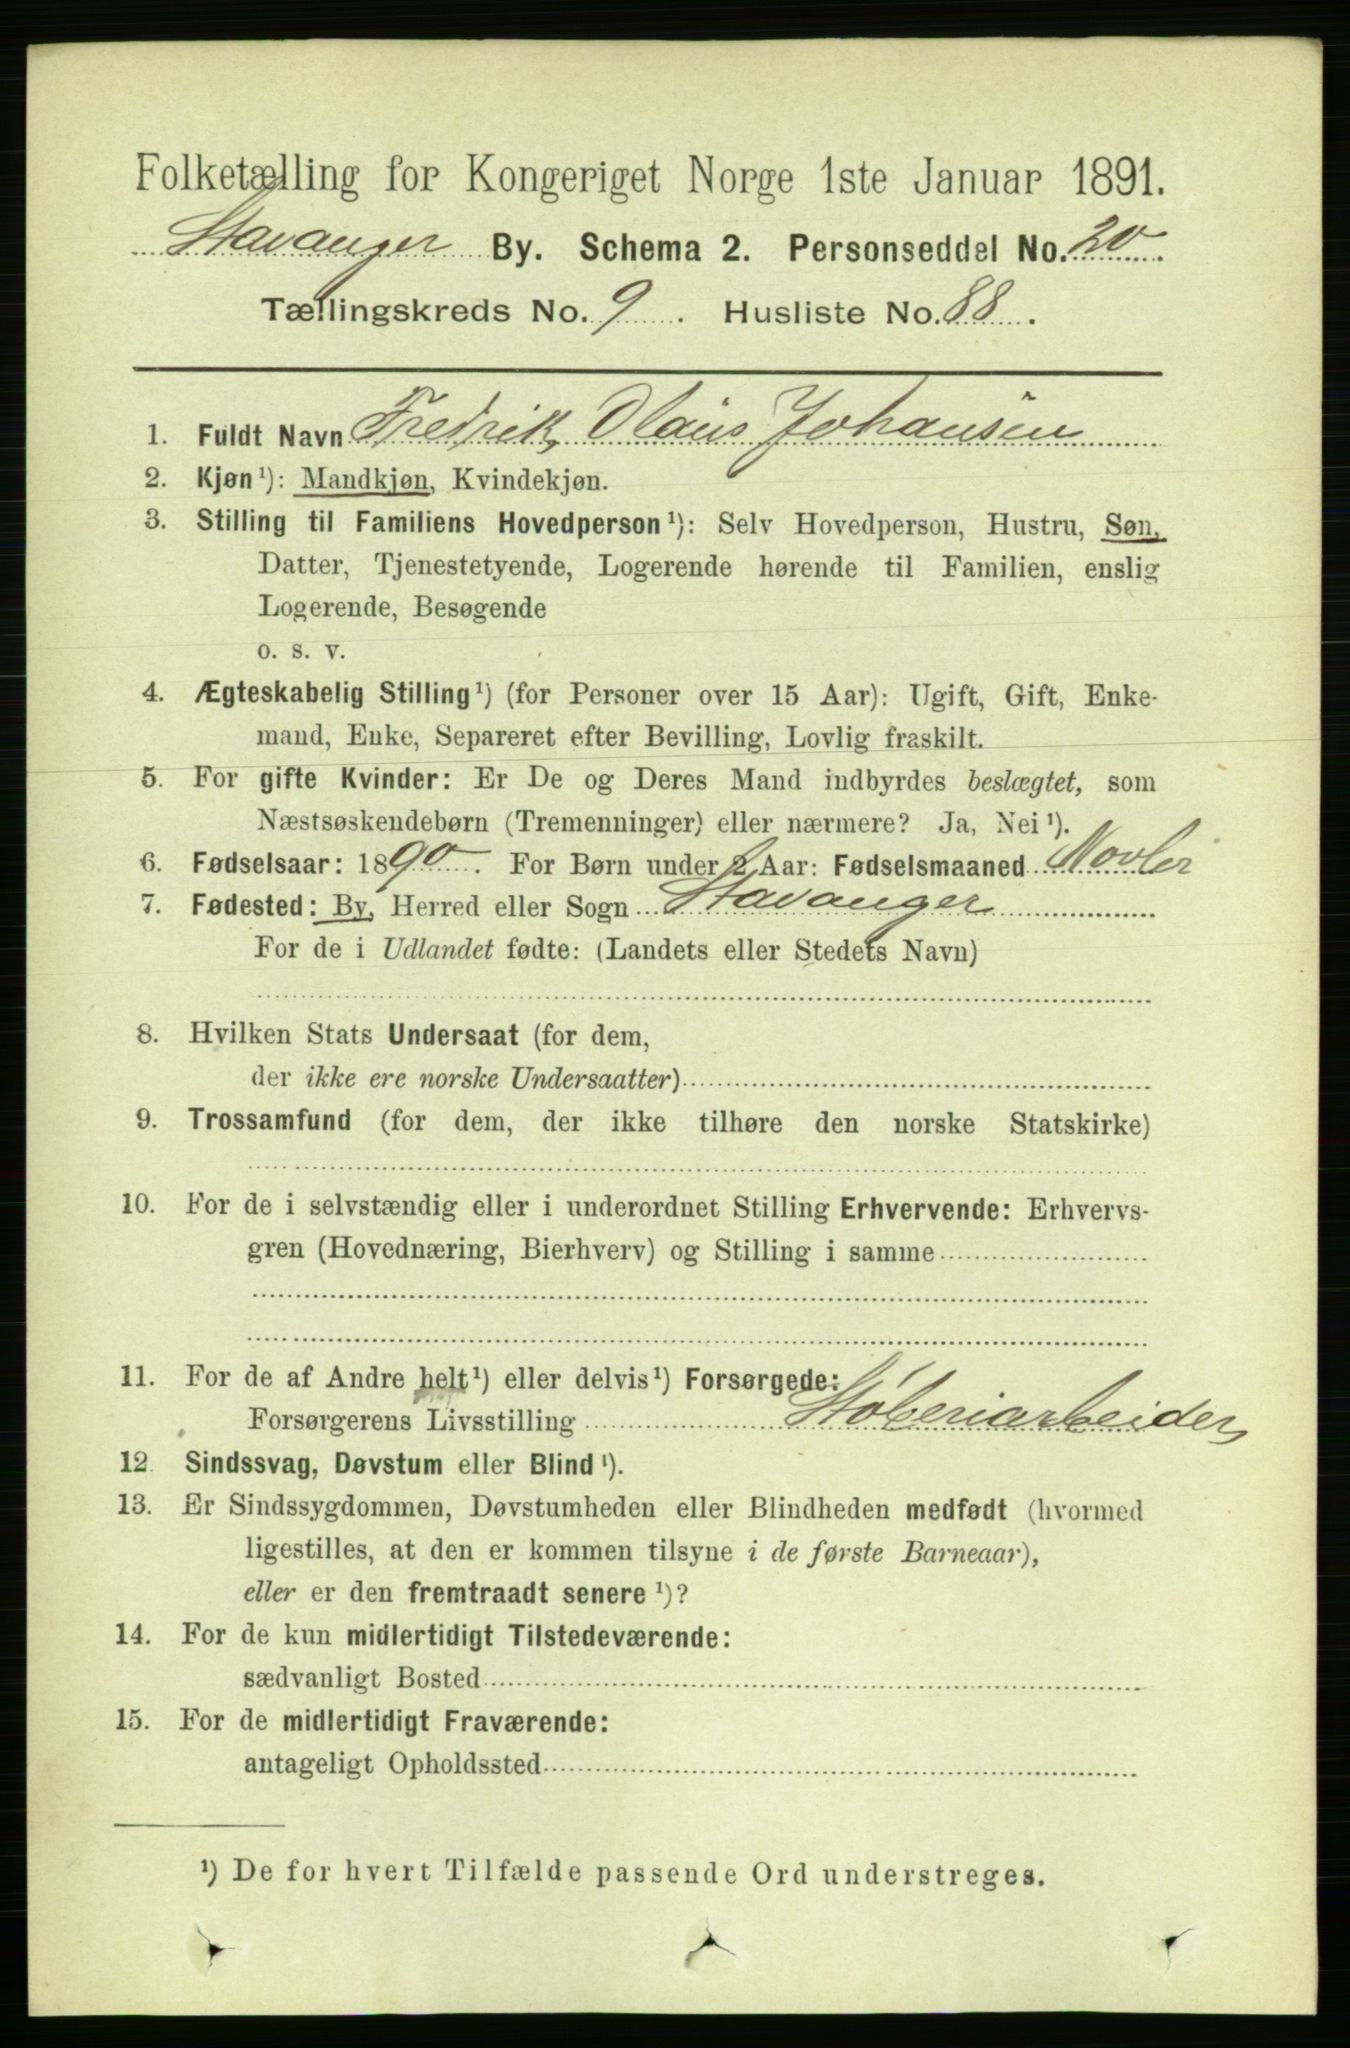 Folketælling for Kongeriget Norge 1ste Januar 1891.
Stavanger By. Schema 2. Personseddel No. 20.
Tællingskreds No. 9. Husliste No. 88.
1. Fuldt Navn Fredrik Olaus Johansen
2. Kjøn¹): Mandkjøn, Kvindekjøn.
3. Stilling til Familiens Hovedperson¹): Selv Hovedperson, Hustru, Søn,
Datter, Tjenestetyende, Logerende hørende til Familien, enslig
Logerende, Besøgende
o. s. v.
4. Ægteskabelig Stilling¹) (for Personer over 15 Aar): Ugift, Gift, Enke-
mand, Enke, Separeret efter Bevilling, Lovlig fraskilt.
5. For gifte Kvinder: Er De og Deres Mand indbyrdes beslægtet, som
Næstsøskendebørn (Tremenninger) eller nærmere? Ja, Nei¹).
6. Fødselsaar: 1890. For Børn under 2 Aar: Fødselsmaaned Novbr
7. Fødested: By, Herred eller Sogn Stavanger
For de i Udlandet fødte: (Landets eller Stedets Navn)
8. Hvilken Stats Undersaat (for dem,
der ikke ere norske Undersaatter)
9. Trossamfund (for dem, der ikke tilhøre den norske Statskirke)
10. For de i selvstændig eller i underordnet Stilling Erhvervende: Erhvervs-
gren (Hovednæring, Bierhverv) og Stilling i samme
11. For de af Andre helt¹) eller delvis¹) Forsørgede:
Forsørgerens Livsstilling Støberiarbeider
12 Sindssvag, Døvstum eller Blind¹).
13. Er Sindssygdommen, Døvstumheden eller Blindheden medfødt (hvormed
ligestilles, at den er kommen tilsyne i de første Barneaar),
eller er den fremtraadt senere¹)?
14. For de kun midlertidigt Tilstedeværende:
sædvanligt Bosted
15. For de midlertidigt Fraværende:
antageligt Opholdssted
¹) De for hvert Tilfælde passende Ord understreges.